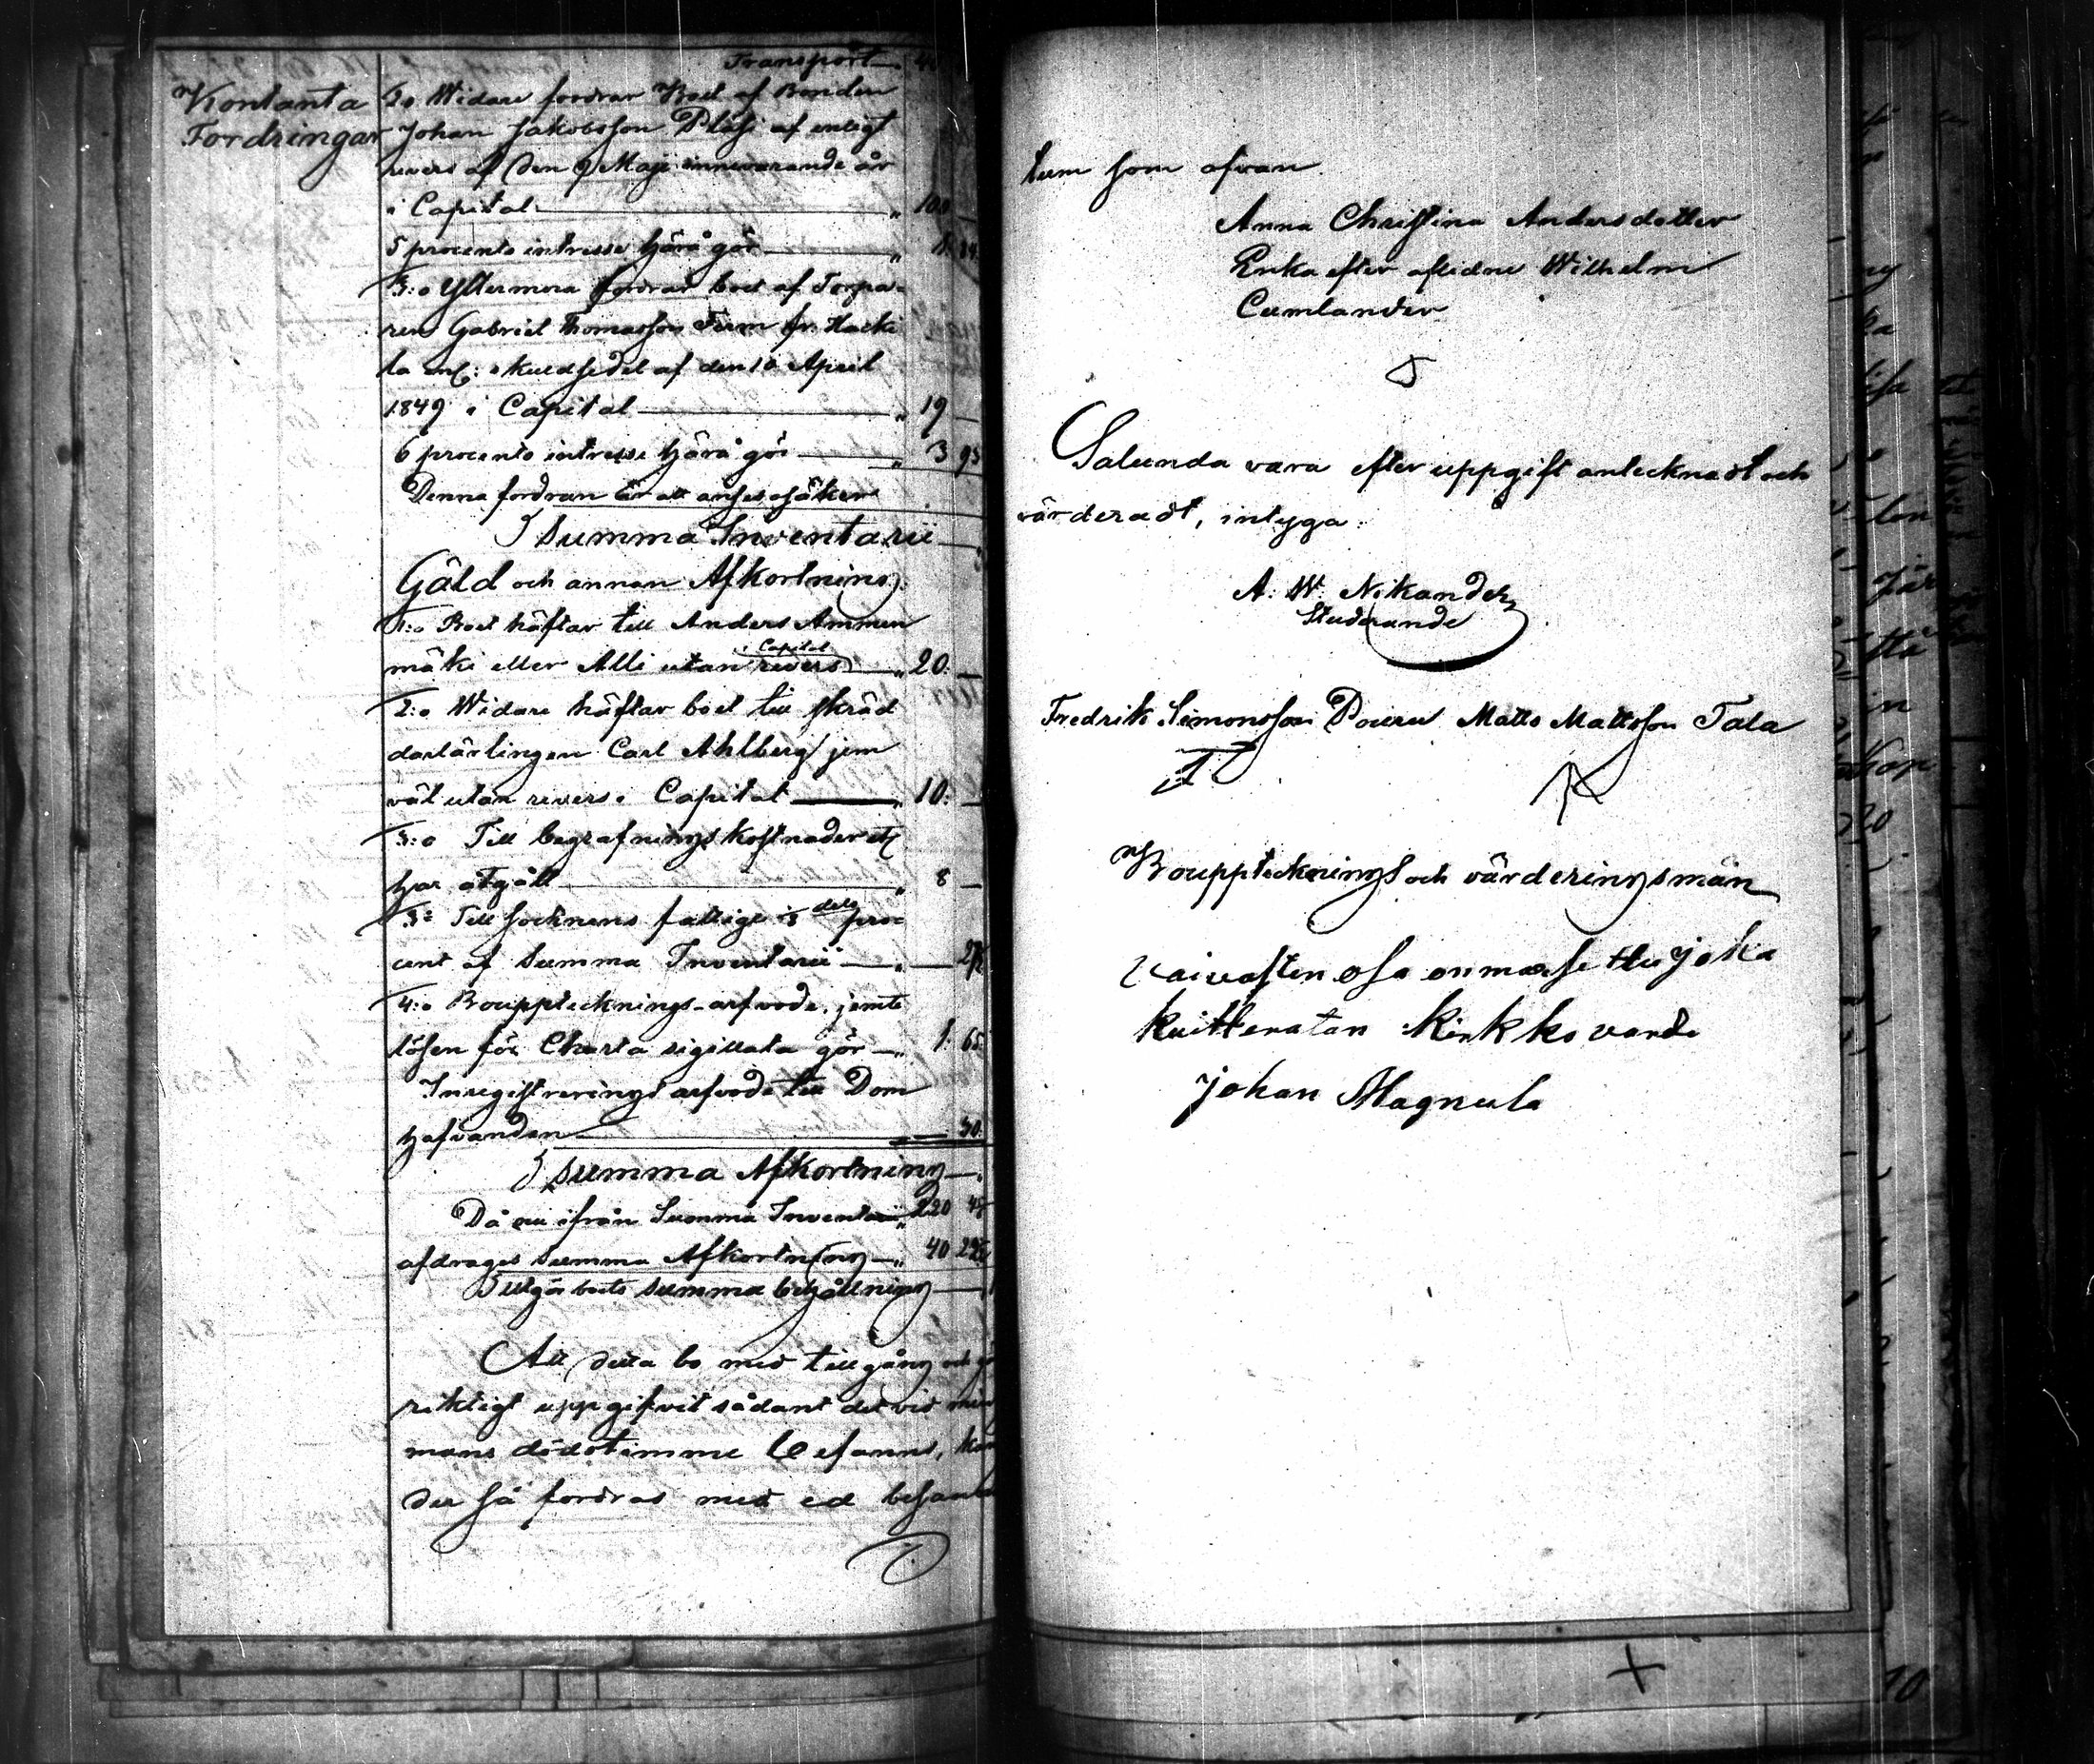 Transport 40
Kontanta
Fordringar
2:o Widare fordrar Boet af Bonden
Johan Jakobsson Pläsi af enligt
revers af den 9 Maji innevarande år
i Capital " 100 —
5 procents intresse härå gör " 1. 84
3:o Yttermera fordrar boet af Torpa-
ren Gabriel Thomasson Tum fr. Hacki
la enl: skuldsedel af den 10 April
1849 i Capital " 19 —
6 procents intresse härå gör " 3 95
Denna fordran är att anses osäker
Summa Inventarii
Gäld och annan Afkortning.
1:o Boet häftar till Anders Ammen
mäki eller Alli utan revers i Capital " 20. —
2:o Widare häftar boet till skräd
darlärlingen Carl Ahlberg jem
väl utan revers i Capital " 10: —
3:o Till begrafnings kostnader etc
har åtgått " 8 —
3:o Till socknens fattige 1/8 dels proc
cent af Summa Inventarii " —
4:o Bouppteknings-arfvode, jemte
lösen för Charta sigillata gör " 1. 65
Inregistrerings arfvode till Dom
hafvanden — 30.
Summa Afkortning
Då nu ifrån Summa Inventarii " 220 48
afdrages Summa Afkortning " 40
Utgör boets summa behållning
Att detta bo med tillgång och
riktigt uppgifvit sådant det vid min
mans dödstimme befanns, kan
der så fordras med ed besann
tum som ofvan.
Anna Christina Andersdotter
Enka efter aflidne Wilhelm
Cumlander
Salunda vara efter uppgift antecknadt och
värderadt, intyga:
A. W. Nikander
Studerande
Fredrik Simonsson Pouru Matts Mattsson Tala
Bouppteknings och värderingsmän
Vaivasten osa on maksettu joka
kuitteratan Kirkko varde
Johan Magnula
10